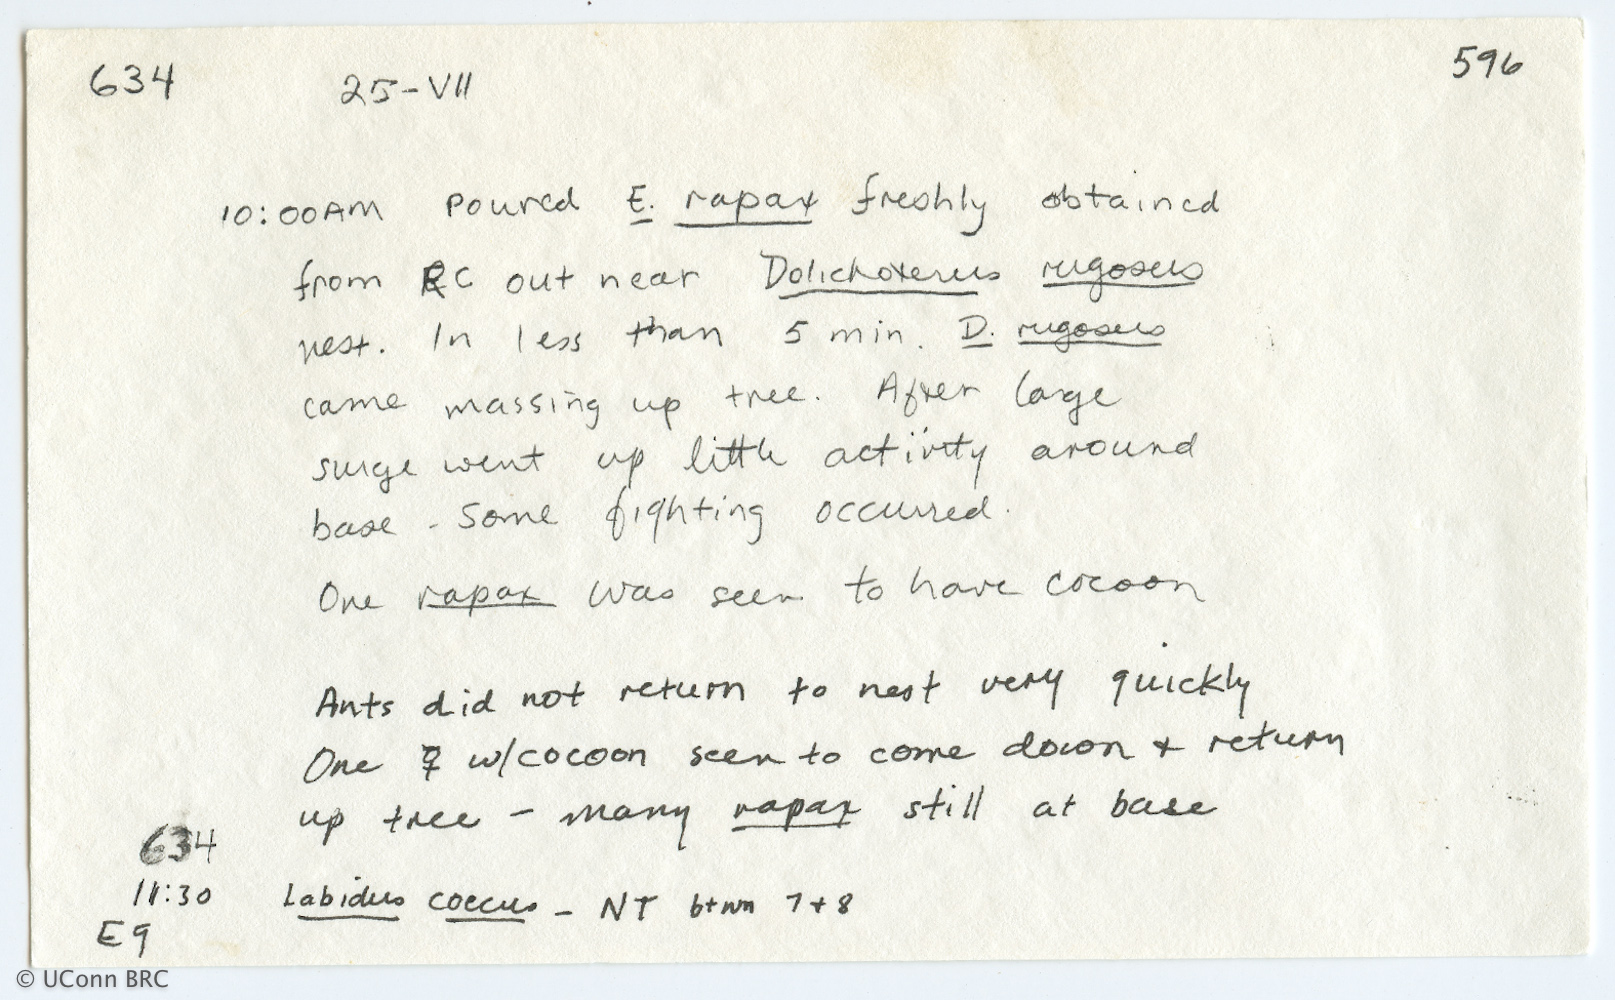 634 25-VII 596
10:00AM Poured E. rapax freshly obtained
from RC out near Dolichoterus rugosus
nest. In less than 5 min. D. rugosus
came massing up tree. After large
surge went up little activity around
base - Some fighting occurred.
One rapax was seen to have cocoon
Ants did not return to nest very quickly
One ☿ w/cocoon seen to come down + return
up tree - many rapax still at base
634
11:30 Labidus coecus - NT btwn 7+8
E9
© UConn BRC